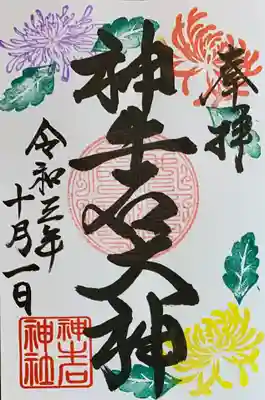 奉拝
神生石大神
令和三年
十月一日
神吉
神社